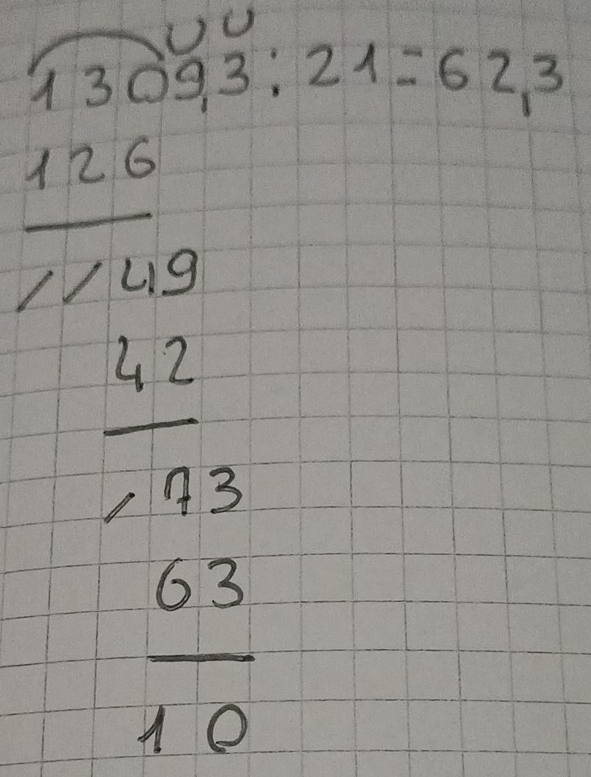 1309,3:21=62,3
126
//49
42
/73
63
10